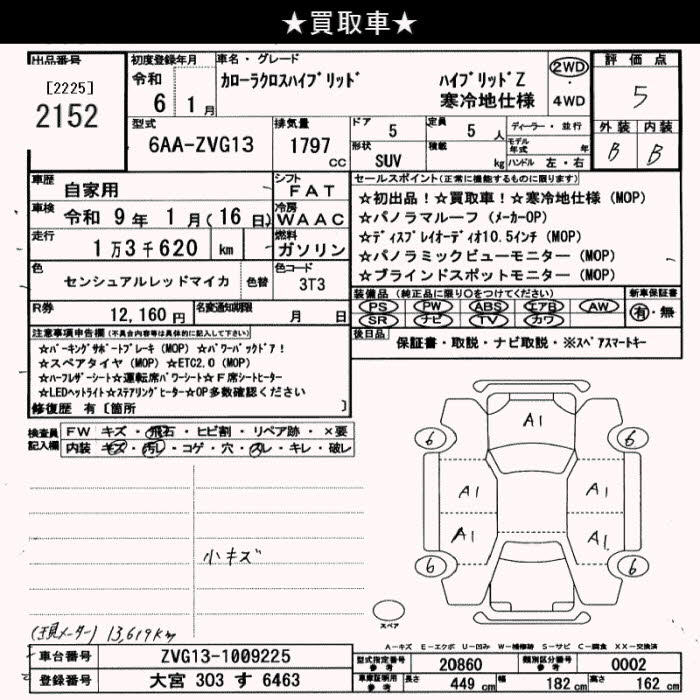 ★買取車★
出品番号
[2225]
2152
初度登録年月
令和
6 1月
車名・グレード
カローラクロスハイブリッド ハイブリッドZ
寒冷地仕様
2WD
・
4WD
評価点
5
外装 内装
B B
型式
6AA-ZVG13
排気量
1797
cc
ドア 5
定員 5 人
形状 SUV
積載 kg
ディーラー・並行
モデル年式 年
ハンドル 左・右
車歴 自家用
シフト FAT
車検 令和 9年 1月(16日)
冷房 WAAC
走行 1万3千620 km
燃料 ガソリン
色 センシュアルレッドマイカ
色替
色コード 3T3
R券 12,160円
名変通知期限 月 日
セールスポイント(正常に機能するものに限ります)
☆初出品!☆買取車!☆寒冷地仕様(MOP)
☆パノラマルーフ(メーカーOP)
☆ディスプレイオーディオ10.5インチ(MOP)
☆パノラミックビューモニター(MOP)
☆ブラインドスポットモニター(MOP)
装備品(純正品に限り○をつけてください)
PS PW ABS エアB AW
SR ナビ TV カワ
新車保証書
有・無
後日品
保証書・取説・ナビ取説・※スペアスマートキー
注意事項申告欄(不具合内容等は具体的に記入して下さい)
☆パーキングサポートブレーキ(MOP) ☆パワーバックドア!
☆スペアタイヤ(MOP) ☆ETC2.0(MOP)
☆ハーフレザーシート☆運転席パワーシート☆F席シートヒーター
☆LEDヘットライト☆ステアリングヒーター☆OP多数確認ください
修復歴 有〔箇所 〕
検査員記入欄
FW キズ・飛石・ヒビ割・リペア跡・×要
内装 キズ・汚レ・コゲ・穴・スレ・キレ・破レ
A1
6 6
A1 A1
A1 A1
6 6
小キズ
スペア
(現メーター) 13,619km
A−キズ E−エクボ U−凹み W−補修跡 S−サビ C−腐食 XX−交換済
車台番号 ZVG13-1009225
登録番号 大宮 303 す 6463
型式指定番号 参考 20860
類別区分番号 参考 0002
車庫証明用 参考 長さ 449 cm 幅 182 cm 高さ 162 cm